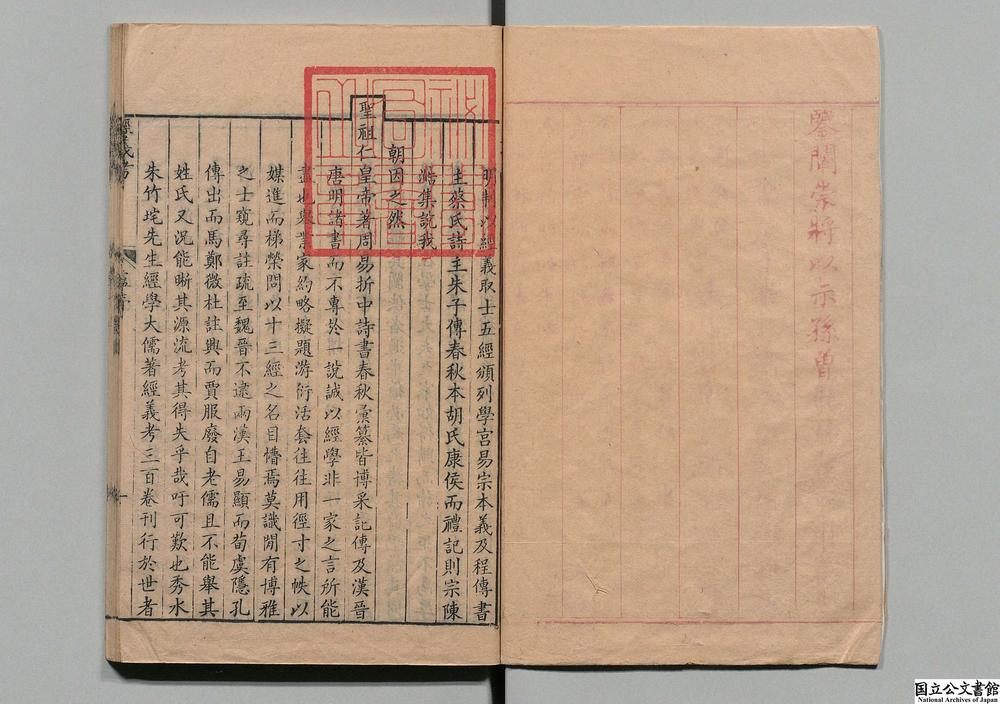 鑒閣崇將以示孫曾
明制以經義取士五經頒列學宮易宗本義及程傳書
主蔡氏詩主朱子傳春秋本胡氏康侯而禮記則宗陳
澔集說我
朝因之然
聖祖仁皇帝著周易折中詩書春秋彙纂皆博采記傳及漢晉
唐明諸書而不專於一說誠以經學非一家之言所能
盡也舉業家約略擬題游衍活套往往用徑寸之帙以
媒進而梯榮問以十三經之名目懵焉莫識閒有博雅
之士窺尋註疏至魏晉不逮兩漢王易顯而荀虞隱孔
傳出而馬鄭微杜註興而賈服廢自老儒且不能舉其
姓氏又況能晰其源流考其得失乎哉吁可歎也秀水
朱竹垞先生經學大儒著經義考三百卷刊行於世者
經義考
一
国立公文書館
National Archives of Japan